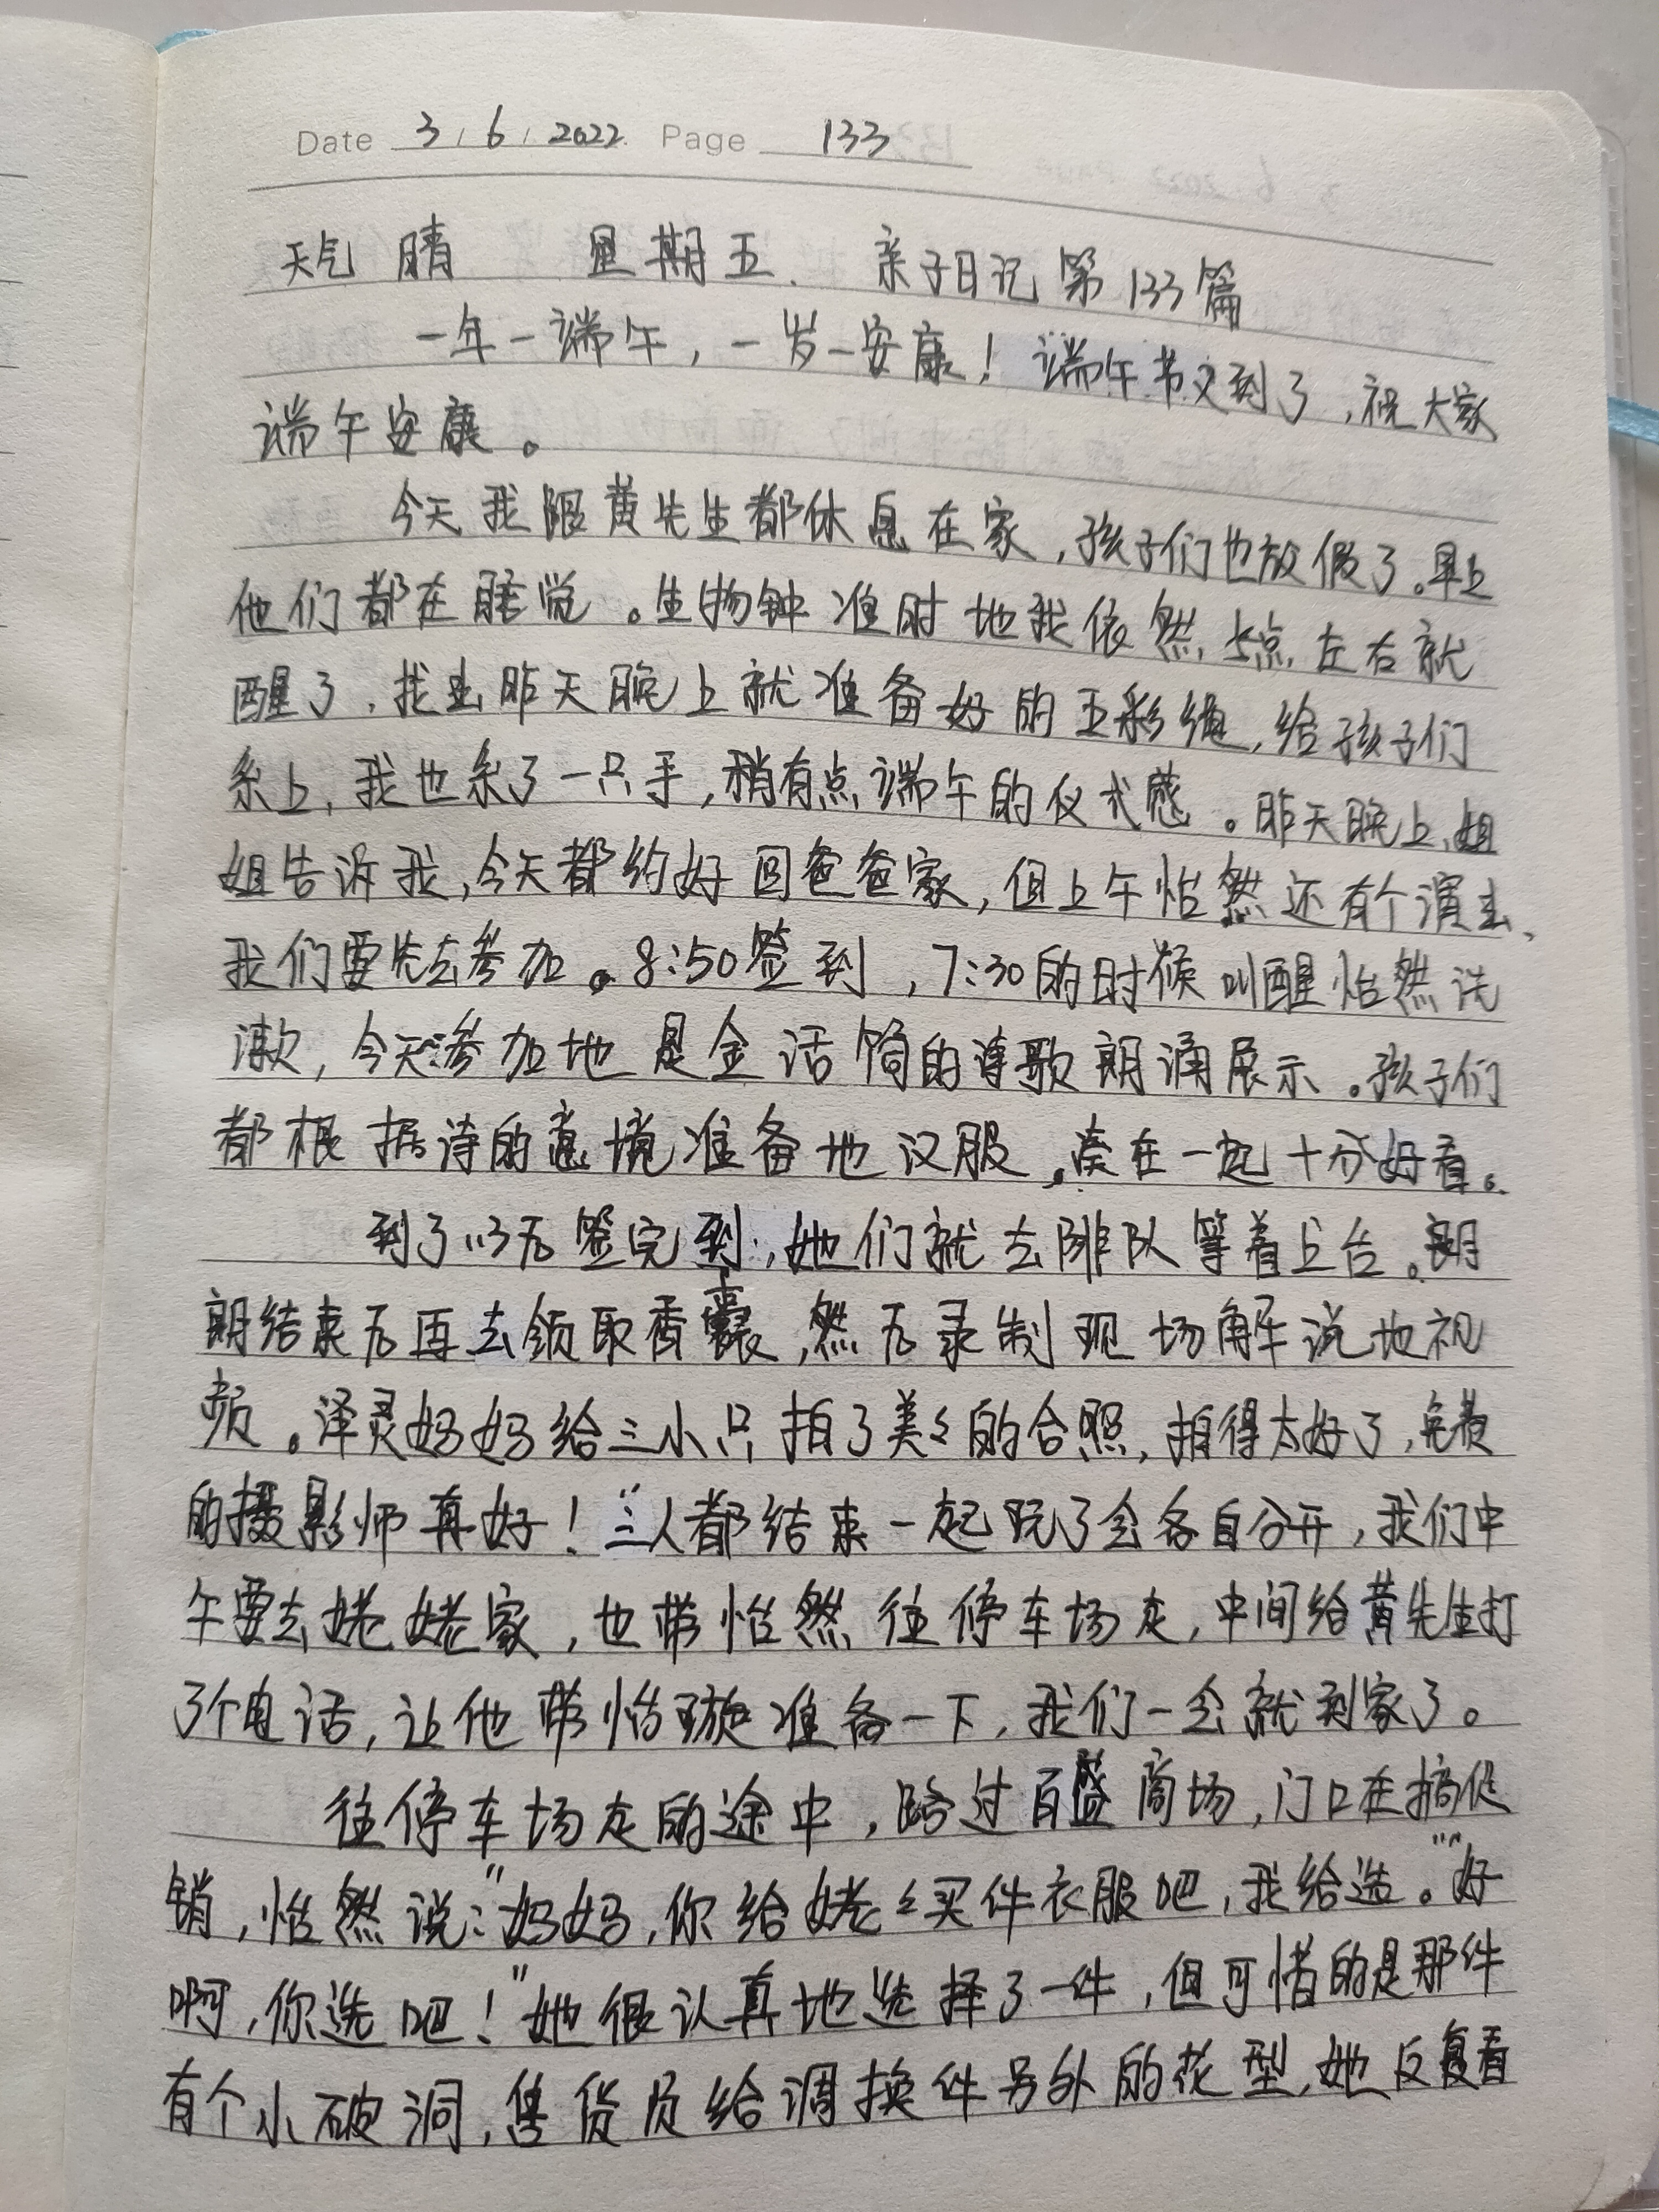 Date 3 / 6 / 2022 Page 133
天气 晴 星期五. 亲子日记 第133篇
一年一端午，一岁一安康！端午节又到了，祝大家
端午安康。
今天我跟黄先生都休息在家，孩子们也放假了。早上
他们都在睡觉。生物钟准时地我依然5点左右就
醒了，找出昨天晚上就准备好的五彩绳，给孩子们
系上，我也系了一只手，稍有点端午的仪式感。昨天晚上，姐
姐告诉我，今天都约好回爸爸家，但上午怡然还有个演出、
我们要先去参加。8:50签到，7:30的时候叫醒怡然洗
漱，今天参加地是金话筒的诗歌朗诵展示。孩子们
都根据诗的意境准备地汉服，凑在一起十分好看。
到了以后签完到，她们就去排队等着上台。朗
朗结束后再去领取香囊，然后录制现场解说地视
频。泽灵妈妈给三小只拍了美美的合照，拍得太好了，免费
的摄影师真好！三人都结束一起玩了会各自分开，我们中
午要去姥姥家，也带怡然往停车场走，中间给黄先生打
了个电话，让他带怡璇准备一下，我们一会就到家了。
往停车场走的途中，路过百盛商场，门口在搞促
销，怡然说："妈妈，你给姥姥买件衣服吧，我给选。""好
啊，你选吧！"她很认真地选择了一件，但可惜的是那件
有个小破洞，售货员给调换件另外的花型，她反复看